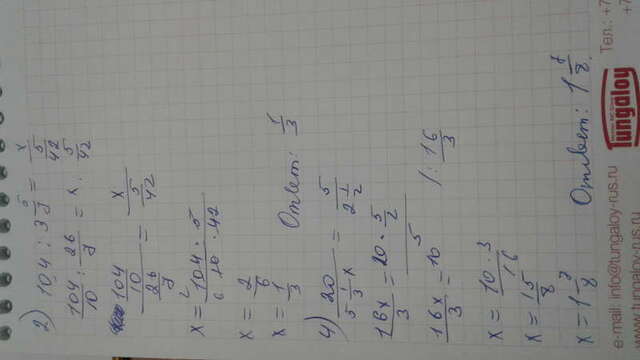 2) 10,4 : 3 5/7 = x / 5/42
104/10 : 26/7 = x : 5/42
104/10 / 26/7 = x / 5/42
x = 104 · 5 / 10 · 42
x = 2/6
x = 1/3 Ответ: 1/3
4) 20 / 5 1/3 x = 5 / 2 1/2
16x/3 = 20 · 5/2 / 5
16x/3 = 10 /: 16/3
x = 10 · 3 / 16
x = 15/8
x = 1 7/8 Ответ: 1 7/8.
e-mail: info@tungaloy-rus.ru Tungaloy Тел.: +7
www.tungaloy-rus.ru +7